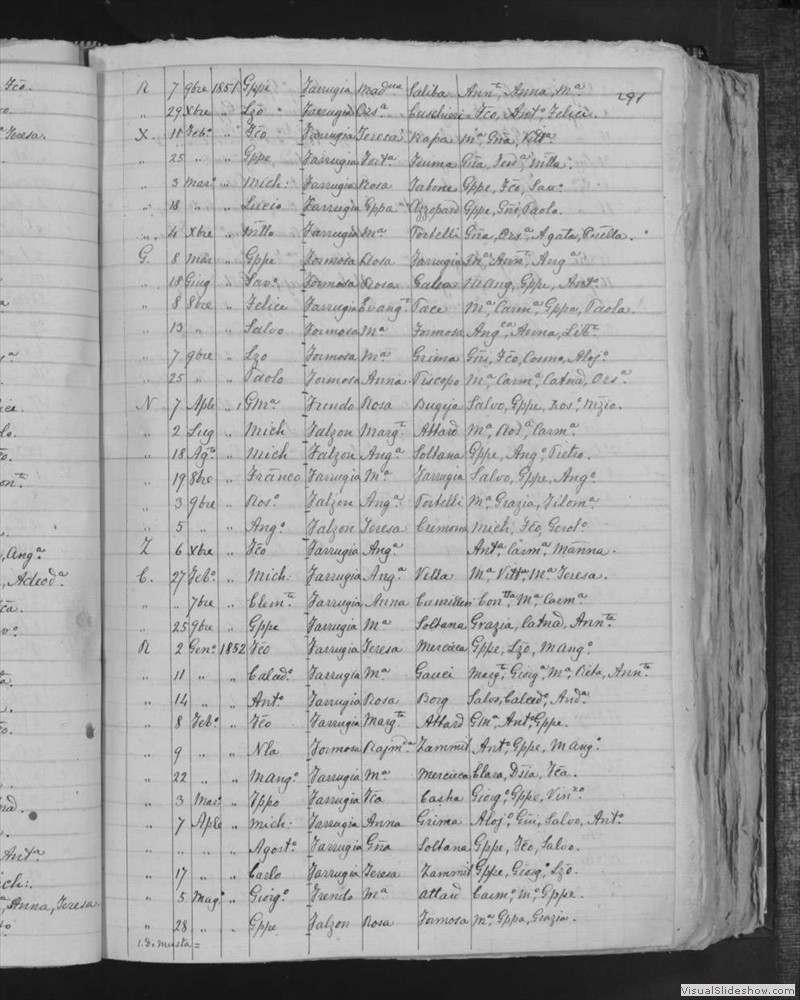 291
R 7 9bre 1851 Gppe Farrugia Mad^na Saliba Ann^t, Anna, M^a
„ 29 Xbre „ Lzo Farrugia Ors^a Cuschieri Fco, Ant^o, Felice.
X 11 Feb^o „ Fco Farrugia Teresa Rapa M^a Gña, Vitt^a.
„ 25 „ „ Gppe Farrugia Fort^a Gña,
„ 3 Mar^o „ Mich: Farrugia Rosa Tabone Gppe, Fco, Sav^o.
„ 18 „ „ Lucio Farrugia Gppa Azzopard Gppe, Gñi, Paolo.
„ 4 Xbre „ Farrugia M^a Portelli Gña, Ors^a, Agata,
G. 8 Mar „ Gppe Formosa Rosa Farrugia M^a, Ann^t, Ang^a
„ 18 Giug „ Sav^o Formosa Rosa Galea Mang, Gppe, Ant^o.
„ 8 8bre „ Felice Farrugia Evang^t Pace M^a, Carm^a, Gppa, Paola.
„ 13 „ „ Salvo Formosa M^a Formosa Ang^ca, Anna, Lib^t.
„ 7 9bre „ Lzo Formosa M^a Grima Gñi, Fco, Cosmo, Aloj^o
„ 25 „ „ Paolo Formosa Anna Piscopo M^a Carm^a, Catnd, Ors^a.
N 7 Aple „ Gm^a Frendo Rosa Bugeja Salvo, Gppe, Ros^o, Nizio.
„ 2 Lug „ Mich Falzon Marg^t Attard M^a, Rod^a, Carm^a
„ 18 Ag^to „ Mich Falzon Ang^a Soltana Gppe, Ang^o, Pietro.
„ 19 8bre „ Franco Farrugia M^a Farrugia Salvo, Gppe, Ang^o.
„ 3 9bre „ Ros^o Falzon Ang^a Portelli M^a Grazia, Filom^a
„ 5 „ „ Ang^o Falzon Teresa Cremona Mich, Fco, Gerol^o
Z 6 Xbre „ Fco Farrugia Ang^a Ant^a Carm^a Manna.
C. 27 Feb^o „ Mich: Farrugia Ang^a Vella M^a Vitt^a, M^a Teresa.
„ „ 7bre „ Clem^te Farrugia Anna Camilleri Con^tta, M^a Carm^a
„ 25 9bre „ Gppe Farrugia M^a Soltana Grazia, Catnd, Ann^ta
R 2 Gen^o 1852 Fco Farrugia Teresa Mercieca Gppe, Lzo, Mang^o
„ 11 „ „ Calced^o Farrugia M^a Gauci Marg^t, Giorg^a, M^a, Rita, Ann^ta
„ 14 „ „ Ant^o Farrugia Rosa Borg Salvo, Calced^o, And^a
„ 8 Feb^o „ Fco Farrugia Marg^ta Attard Gm^a, Ant^o Gppe.
„ 9 „ „ Nla Formosa Rajm^da Zammit Ant^o, Gppe, Mang^o.
„ 22 „ „ Mang^o Farrugia M^a Mercieca Clara, Dsia, Fca.
„ 3 Mar^o „ Fppo Farrugia Fca Casha Giorg^o, Gppe, Vin^zo.
„ 7 Aple „ Mich: Farrugia Anna Grima Aloj^o, Gm, Salvo, Ant^o
„ „ „ „ Agost^o Farrugia Gña Soltana Gppe, Fco, Salvo.
„ 17 „ „ Carlo Farrugia Teresa Zammit Gppe, Giorg^o, Lzo.
„ 5 Mag^o „ Giorg^o Frendo M^a Attard Carm^o, M^o, Gppe.
„ 28 „ „ Gppe Falzon Rosa Formosa M^a, Gppa, Grazia.
VisualSlideshow.com